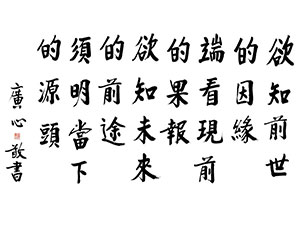 欲知前世
的因緣
端看現前
的果報
欲知未來
的前途
須明當下
的源頭
廣心敬書